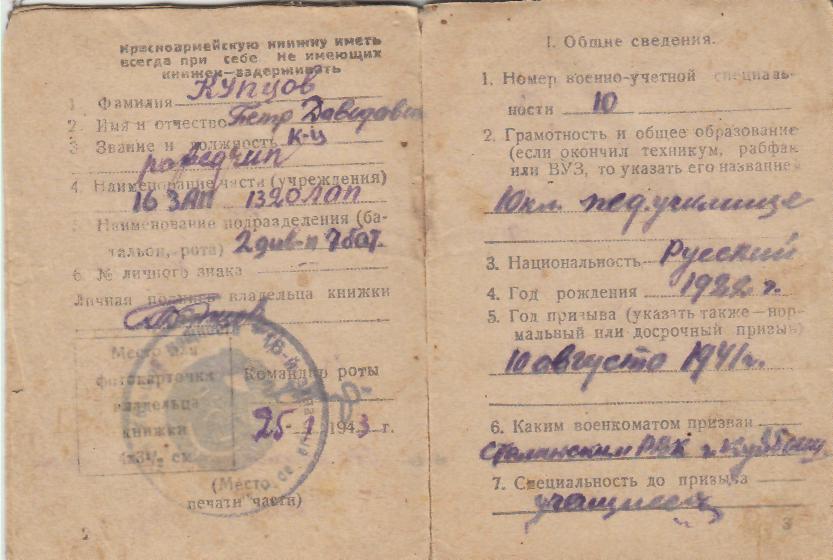 Красноармейскую книжку иметь
всегда при себе. Не имеющих
книжек—задерживать
1. Фамилия Купцов
2. Имя и отчество Петр Давидович
3. Звание и должность к-ц
разведчик
4. Наименование части (учреждения)
16 ЗАП 1320 ЛАП
5. Наименование подразделения (ба-
тальон, рота) 2 див-н 7 бат.
6. № личного знака
Личная подпись владельца книжки
Место для
фотокарточки
владельца
книжки
Командир роты
25- 1943 г.
(Место
печати части)
2
I. Общие сведения.
1. Номер военно-учетной специаль-
ности 10
2. Грамотность и общее образование
(если окончил техникум, рабфак
или ВУЗ, то указать его название)
10 кл. пед. училище
3. Национальность Русский
4. Год рождения 1922 г.
5. Год призыва (указать также—нор-
мальный или досрочный призыв)
10 августа 1941 г.
6. Каким военкоматом призван
Сталинским РВК г. Куйбыш.
7. Специальность до призыва
учащийся
3